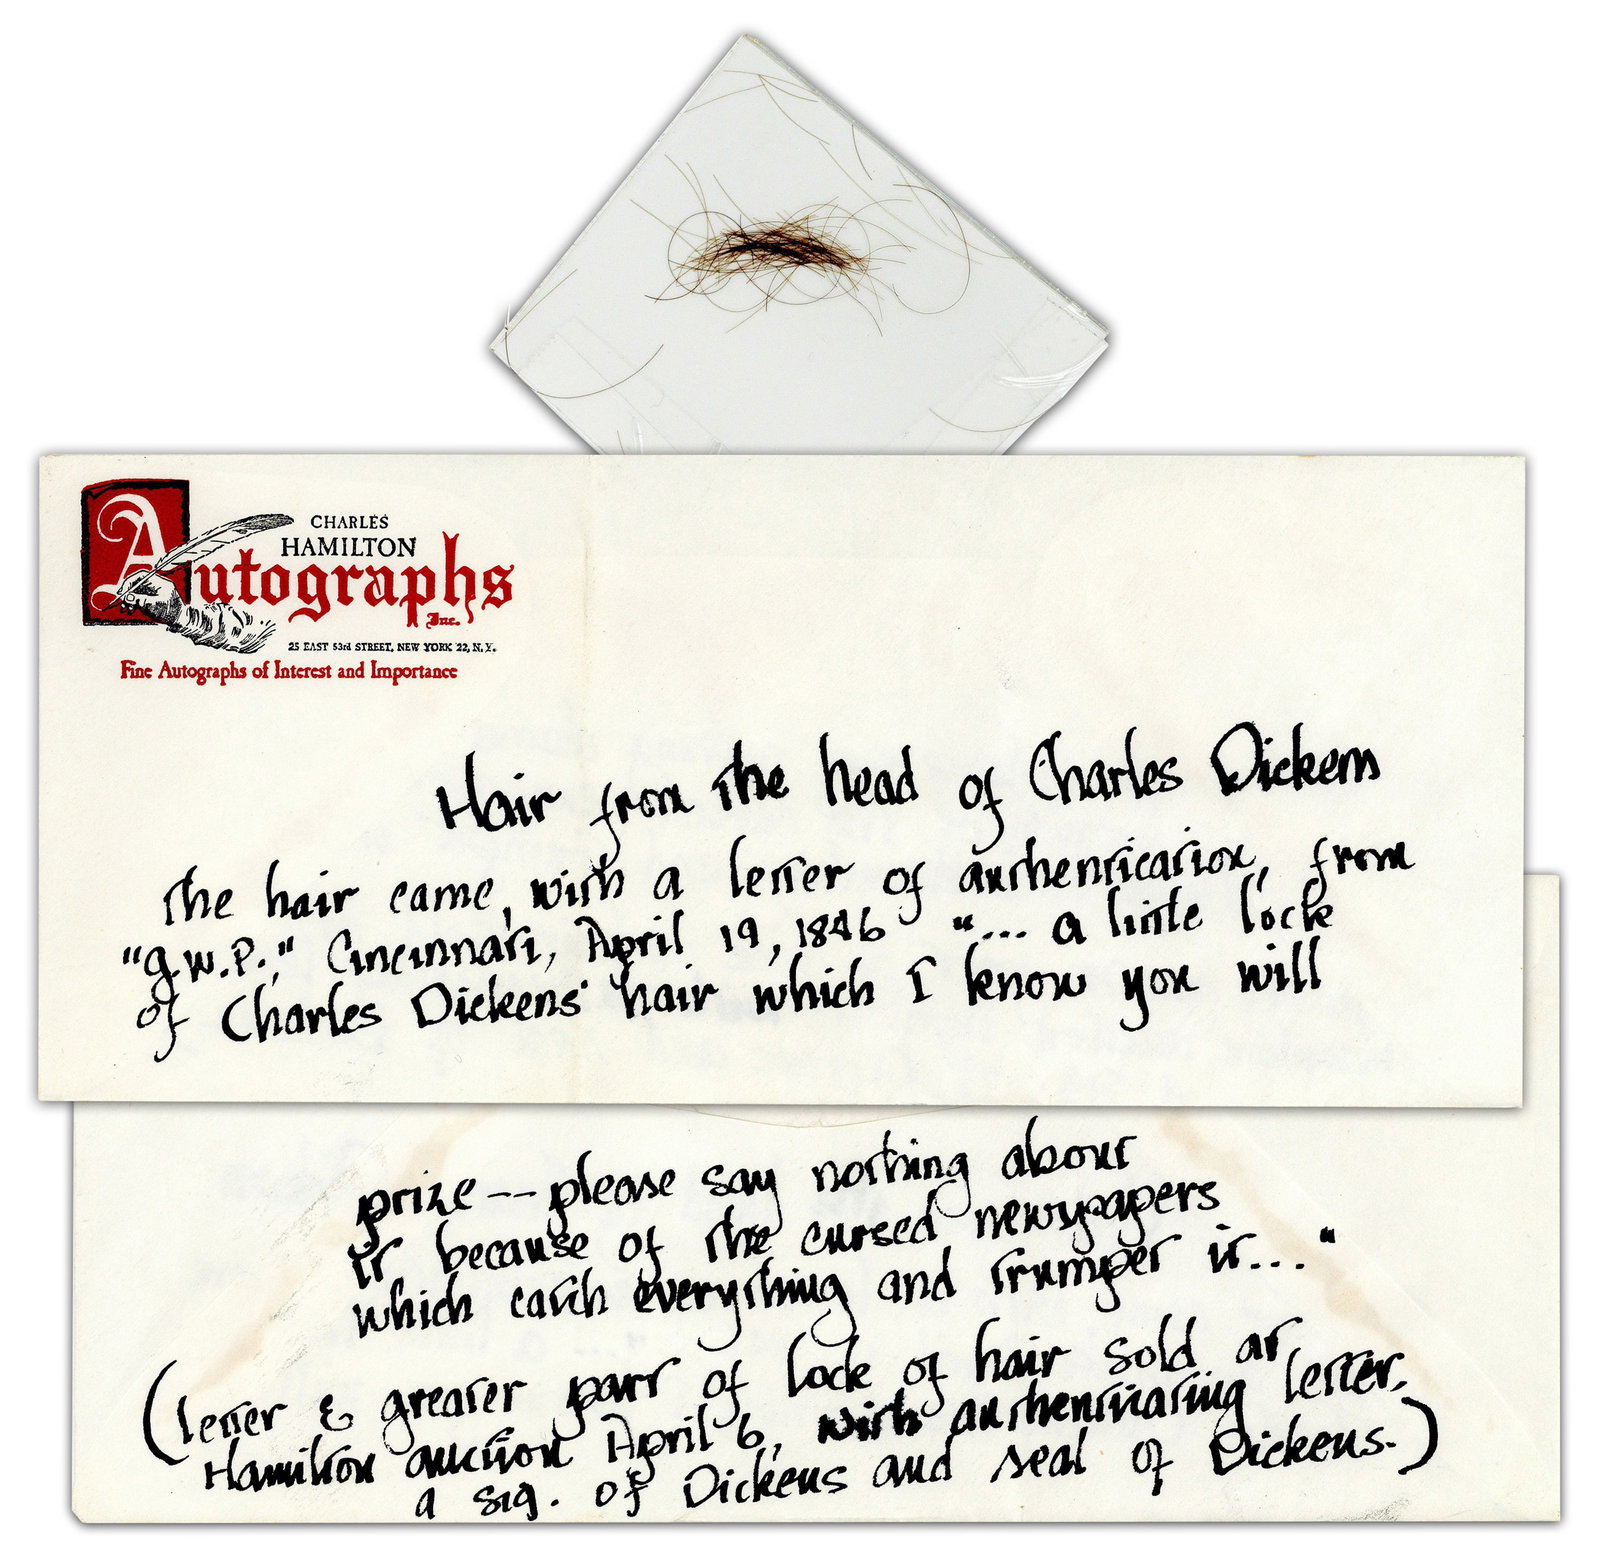 CHARLES
HAMILTON
Autographs
Inc.
25 EAST 53rd STREET, NEW YORK 22, N.Y.
Fine Autographs of Interest and Importance
Hair from the head of Charles Dickens
the hair came, with a letter of authentication, from
"G.W.P.," Cincinnati, April 19, 1846 "... a little lock
of Charles Dickens' hair which I know you will
prize -- please say nothing about
it because of the cursed newspapers
which catch everything and trumpet it..."
(letter & greater part of lock of hair sold at
Hamilton auction April 6, with authenticating letter,
a sig. of Dickens and seal of Dickens.)